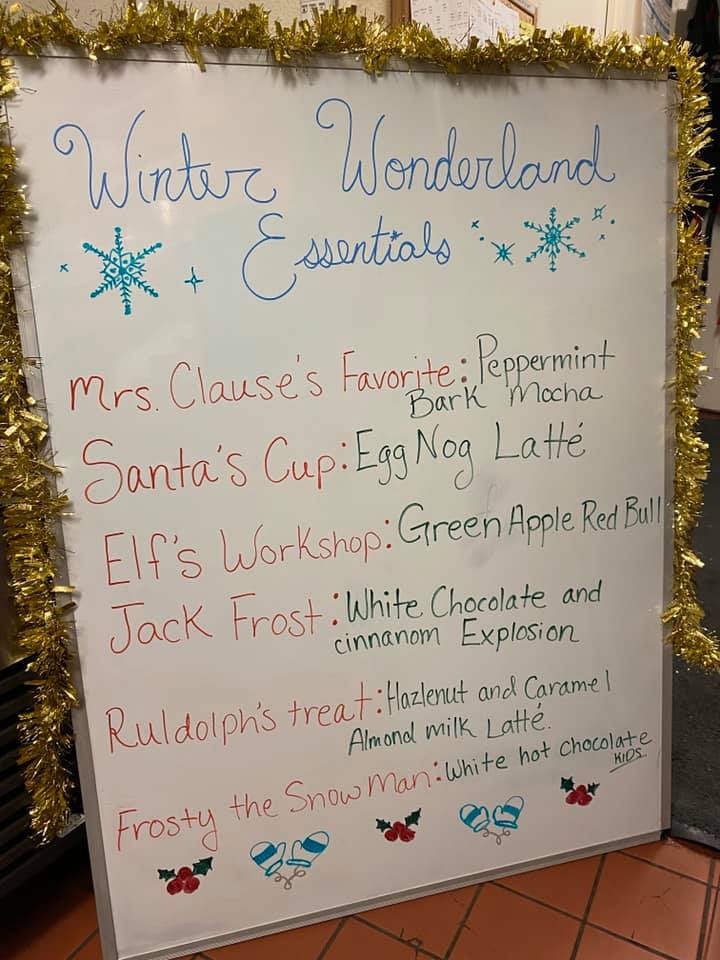 Winter Wonderland
Essentials
Mrs. Clause's Favorite: Peppermint
Bark Mocha
Santa's Cup: Egg Nog Latté
Elf's Workshop: Green Apple Red Bull
Jack Frost: White Chocolate and
cinnanom Explosion
Ruldolph's treat: Hazlenut and Caramel
Almond milk Latté.
Frosty the Snow Man: White hot chocolate
KIDS